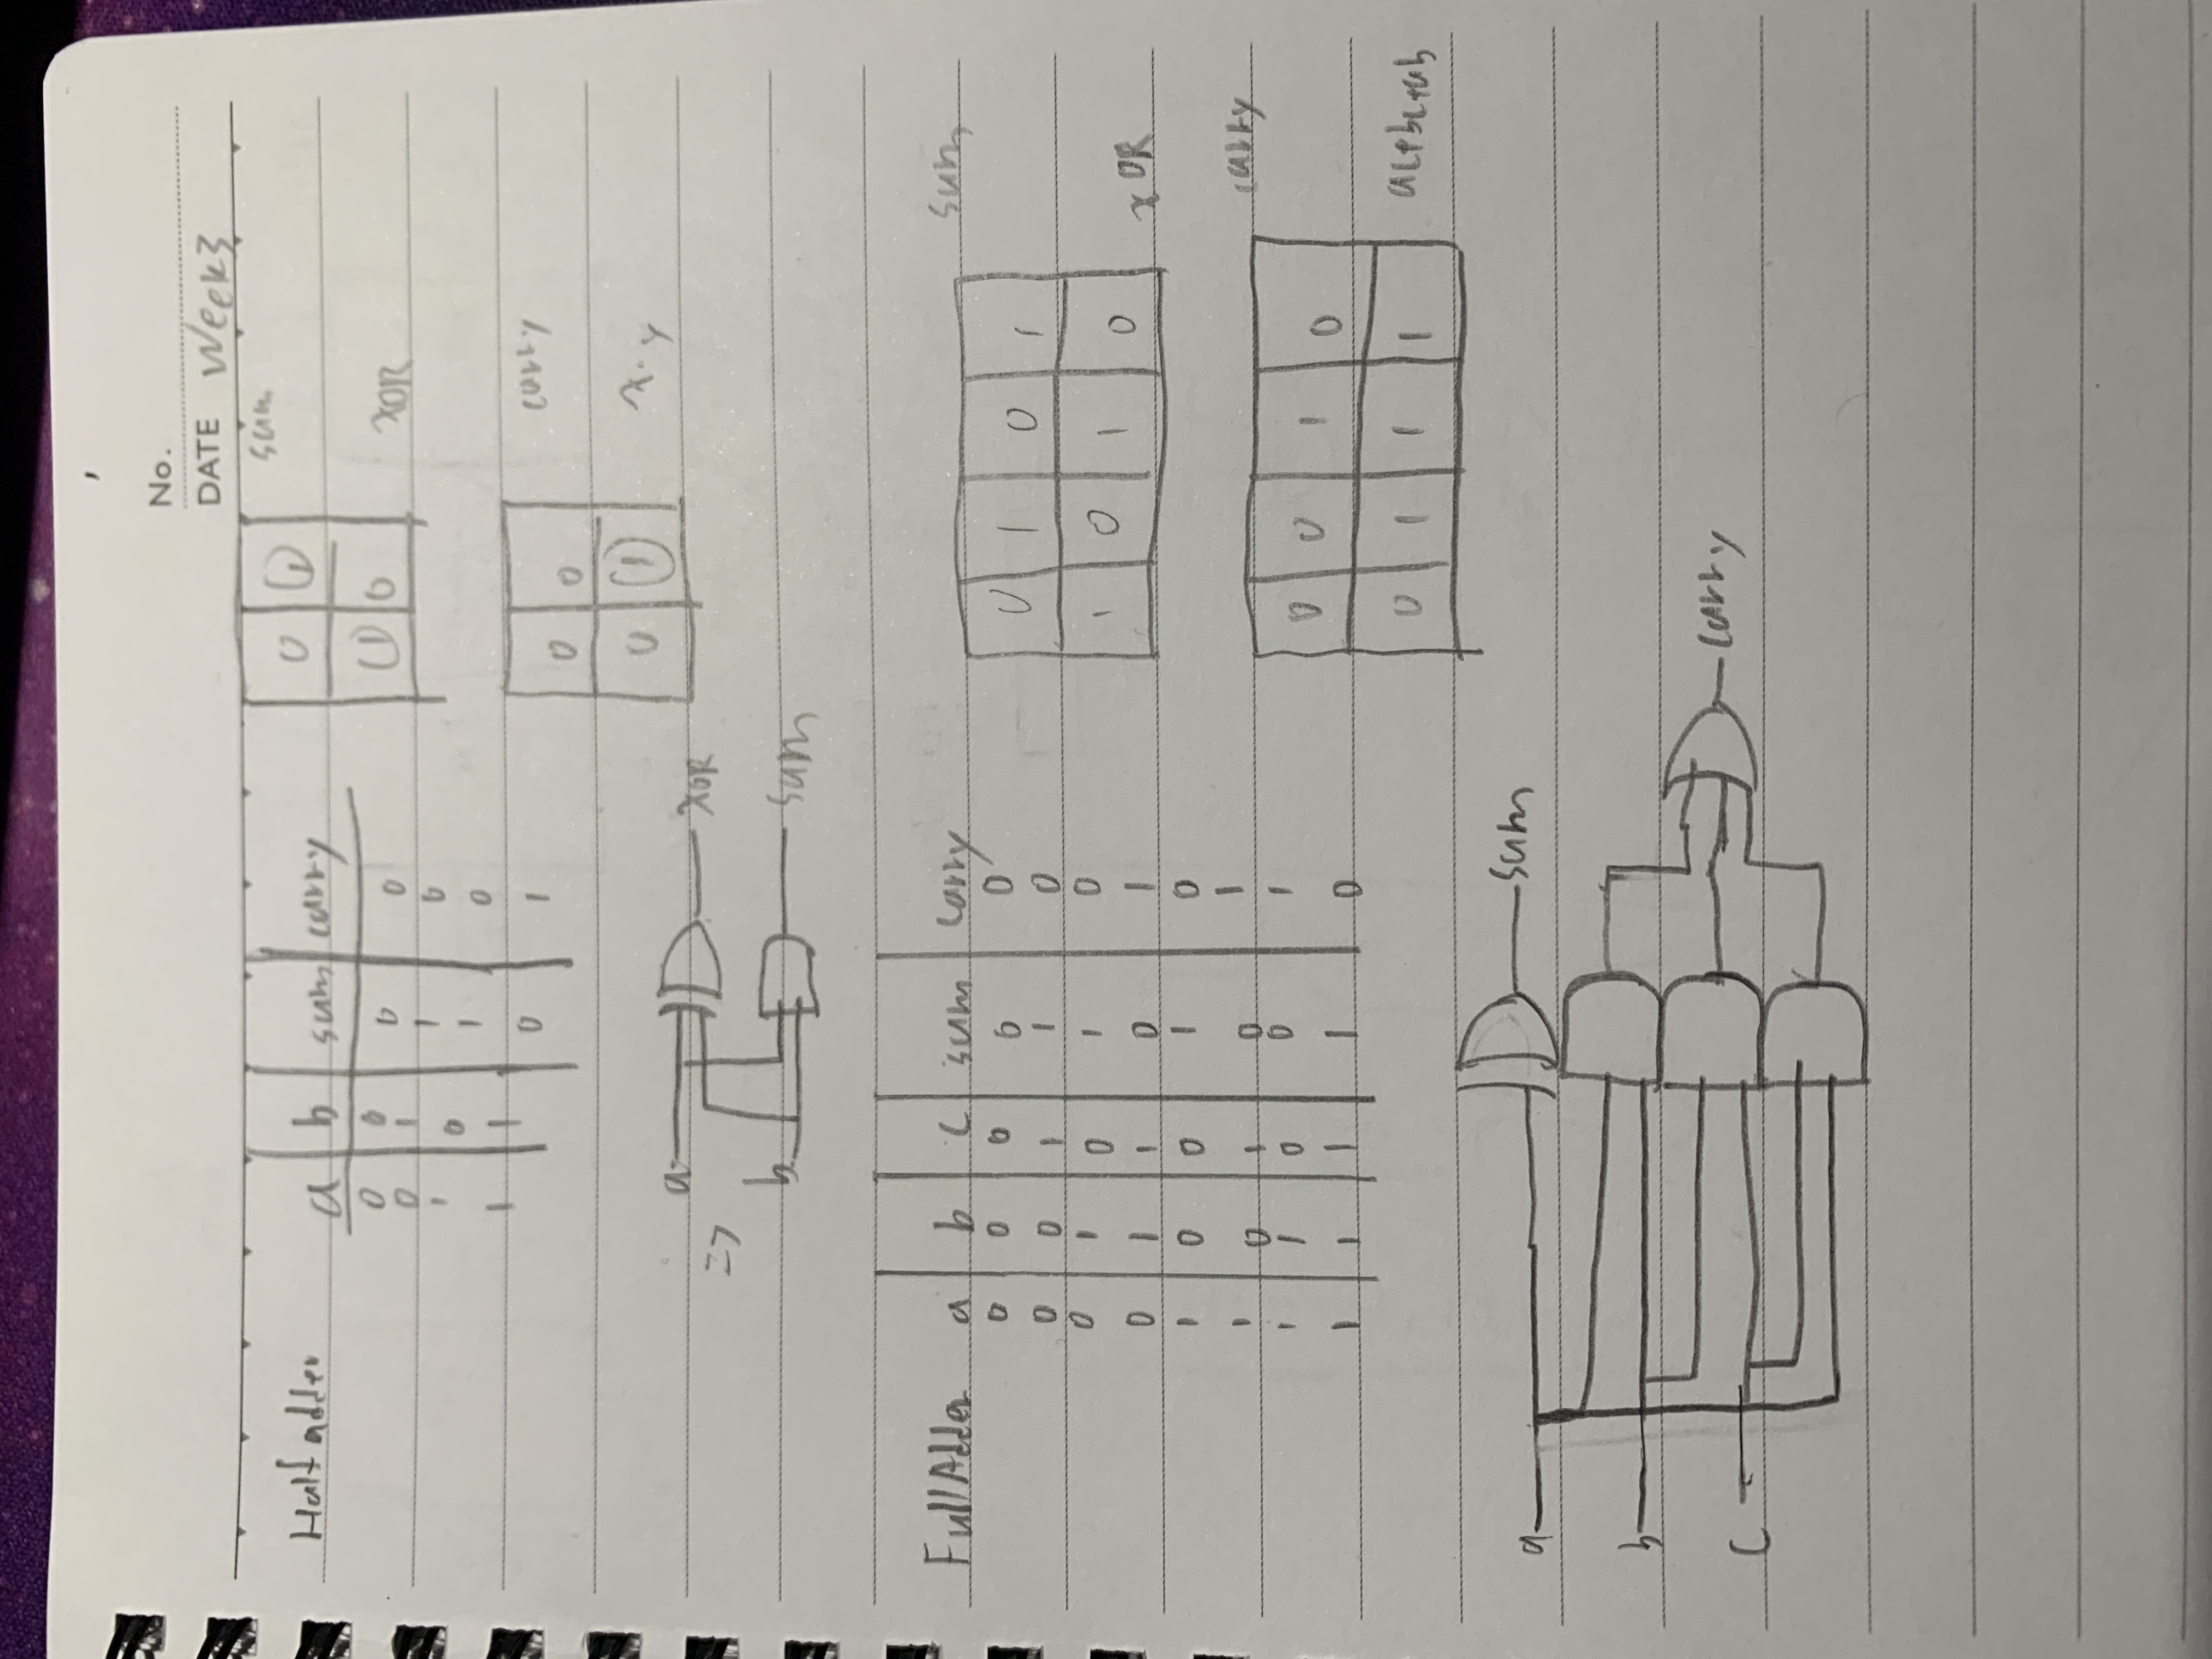 No.
DATE Week3
Half adder
a b sum carry
0 0 0 0
0 1 1 0
1 0 1 0
1 1 0 1
0 1
1 0
sum
XOR
0 0
0 1
carry
x·y
=>
a
b
XOR
sum
Full Adder a b c sum carry
0 0 0 0 0
0 0 1 1 0
0 1 0 1 0
0 1 1 0 1
1 0 0 1 0
1 0 1 0 1
1 1 0 0 1
1 1 1 1 0
0 1 0 1
1 0 1 0
sum
XOR
0 0 1 0
0 1 1 1
carry
ac+bc+ab
a
b
c
sum
carry